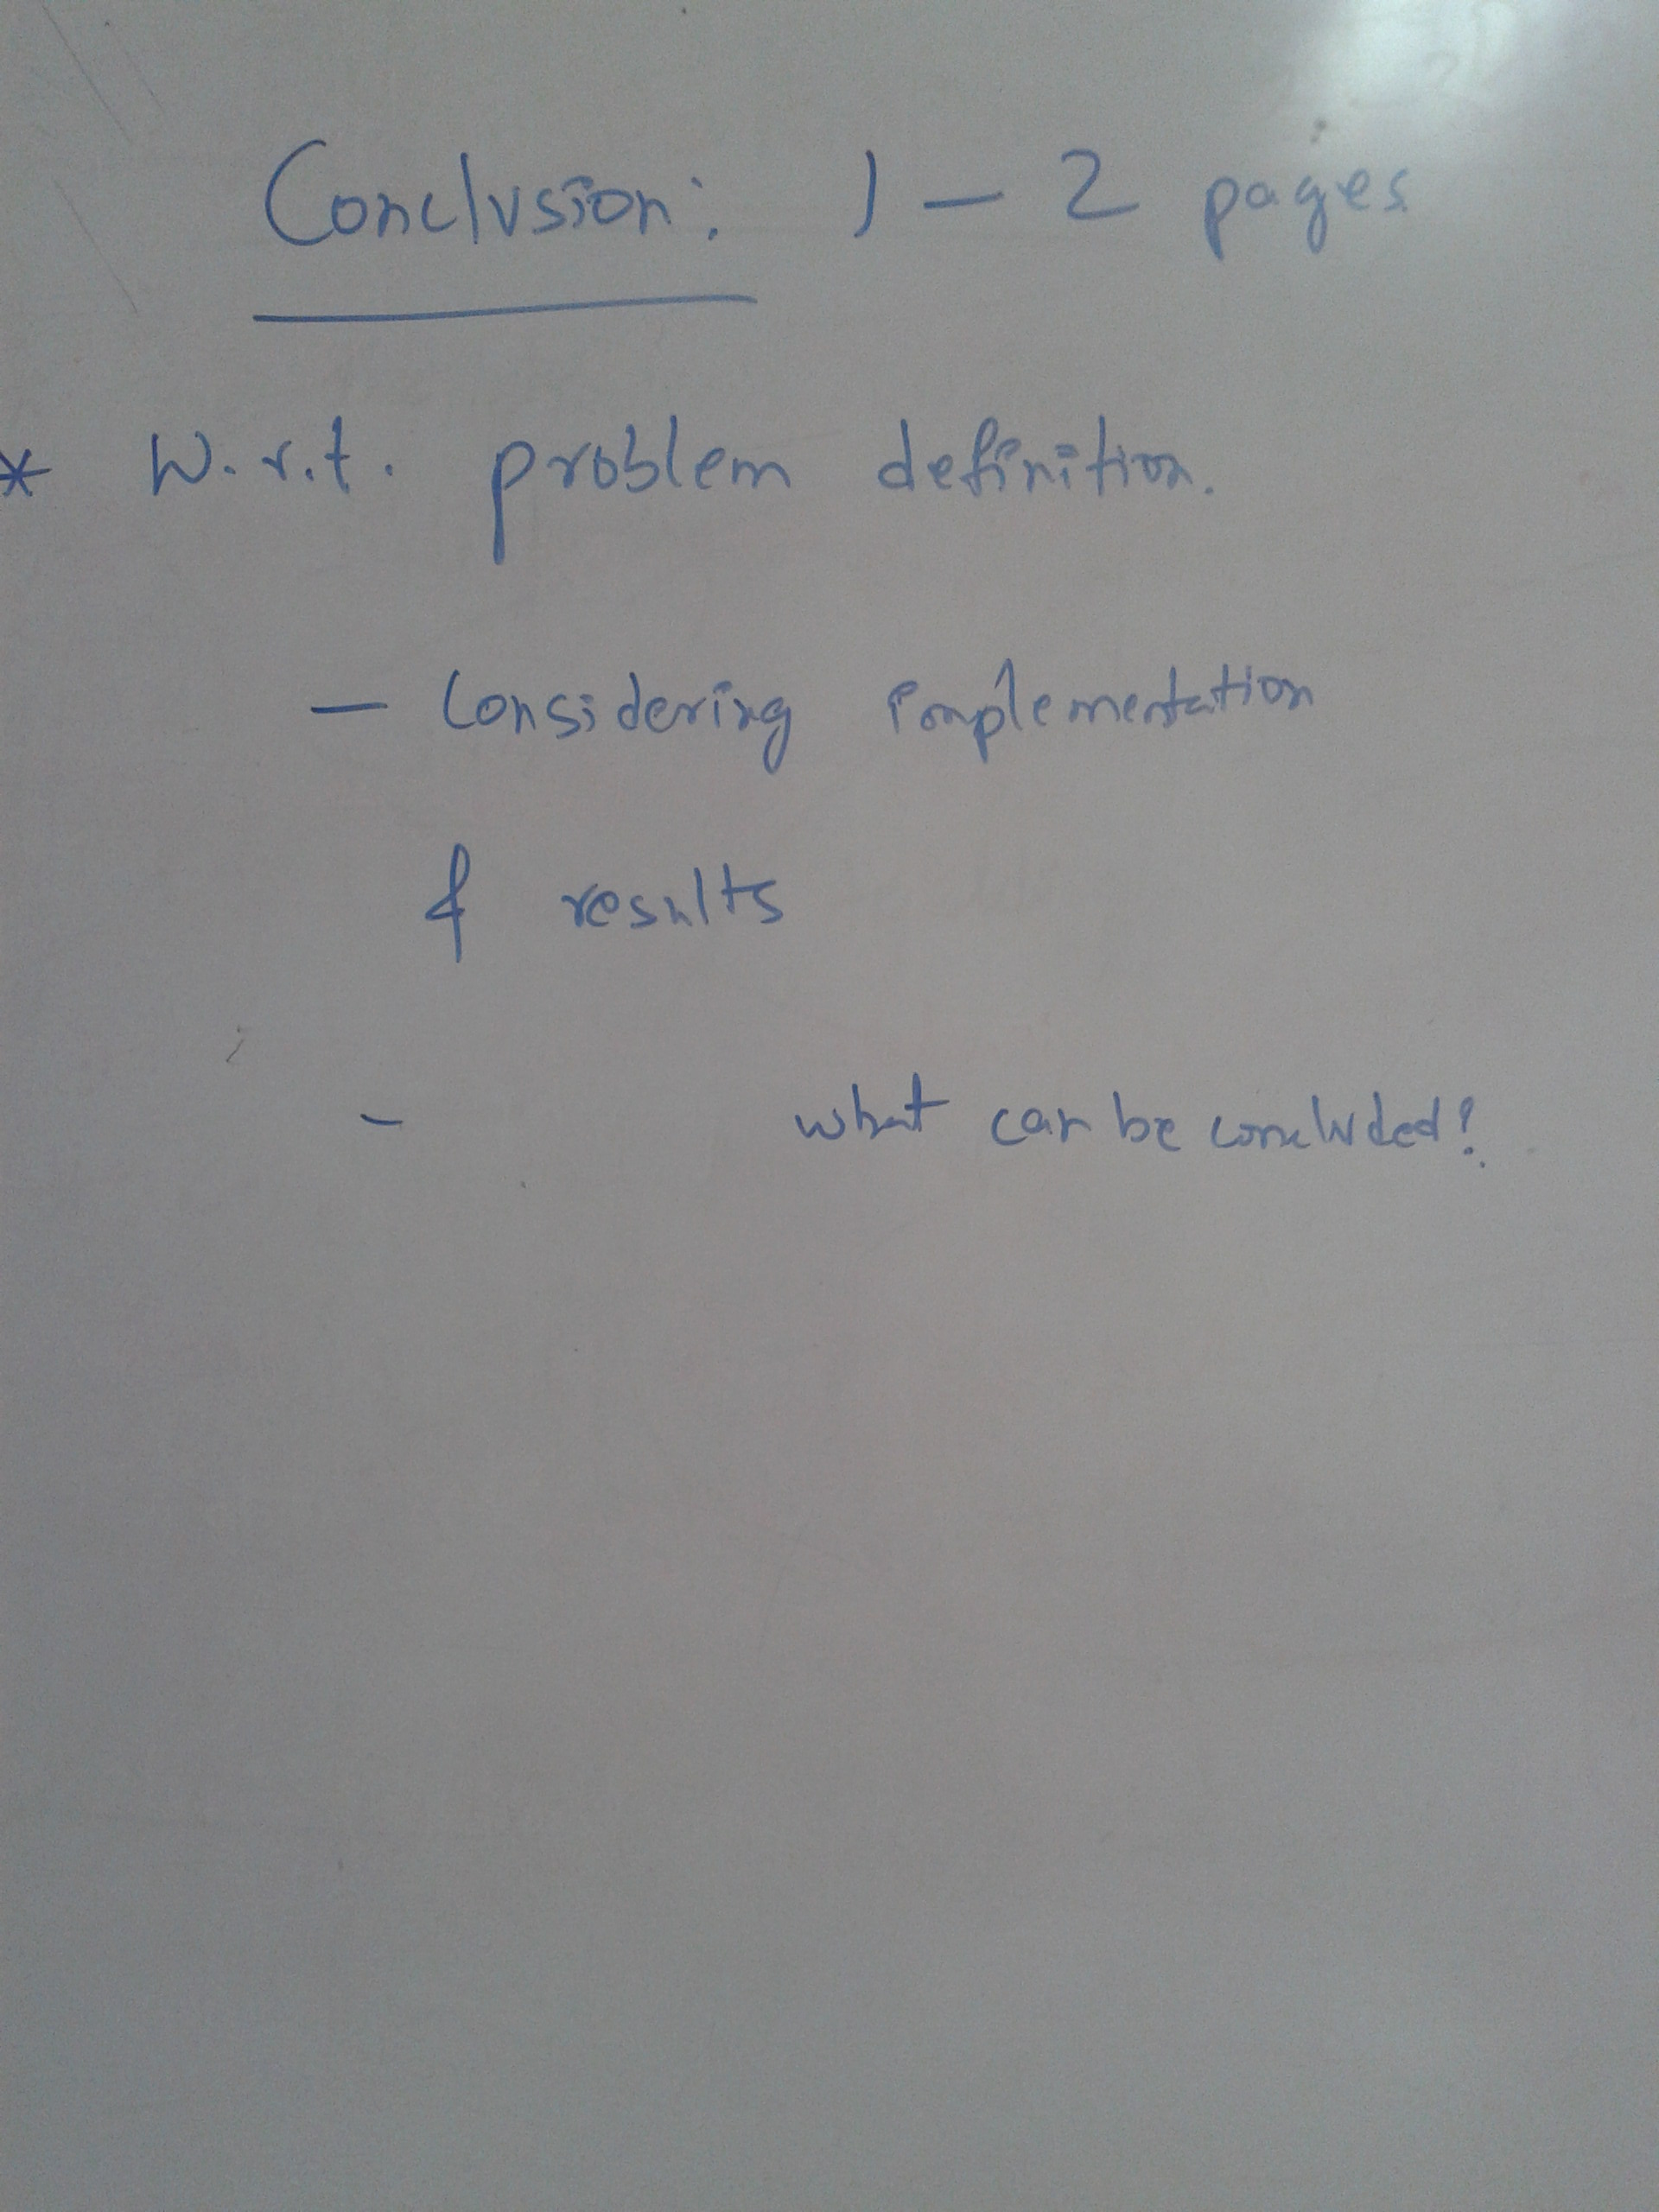 Conclusion: 1 - 2 pages
* W.r.t. problem definition.
- Considering implementation
& results
- what can be concluded?